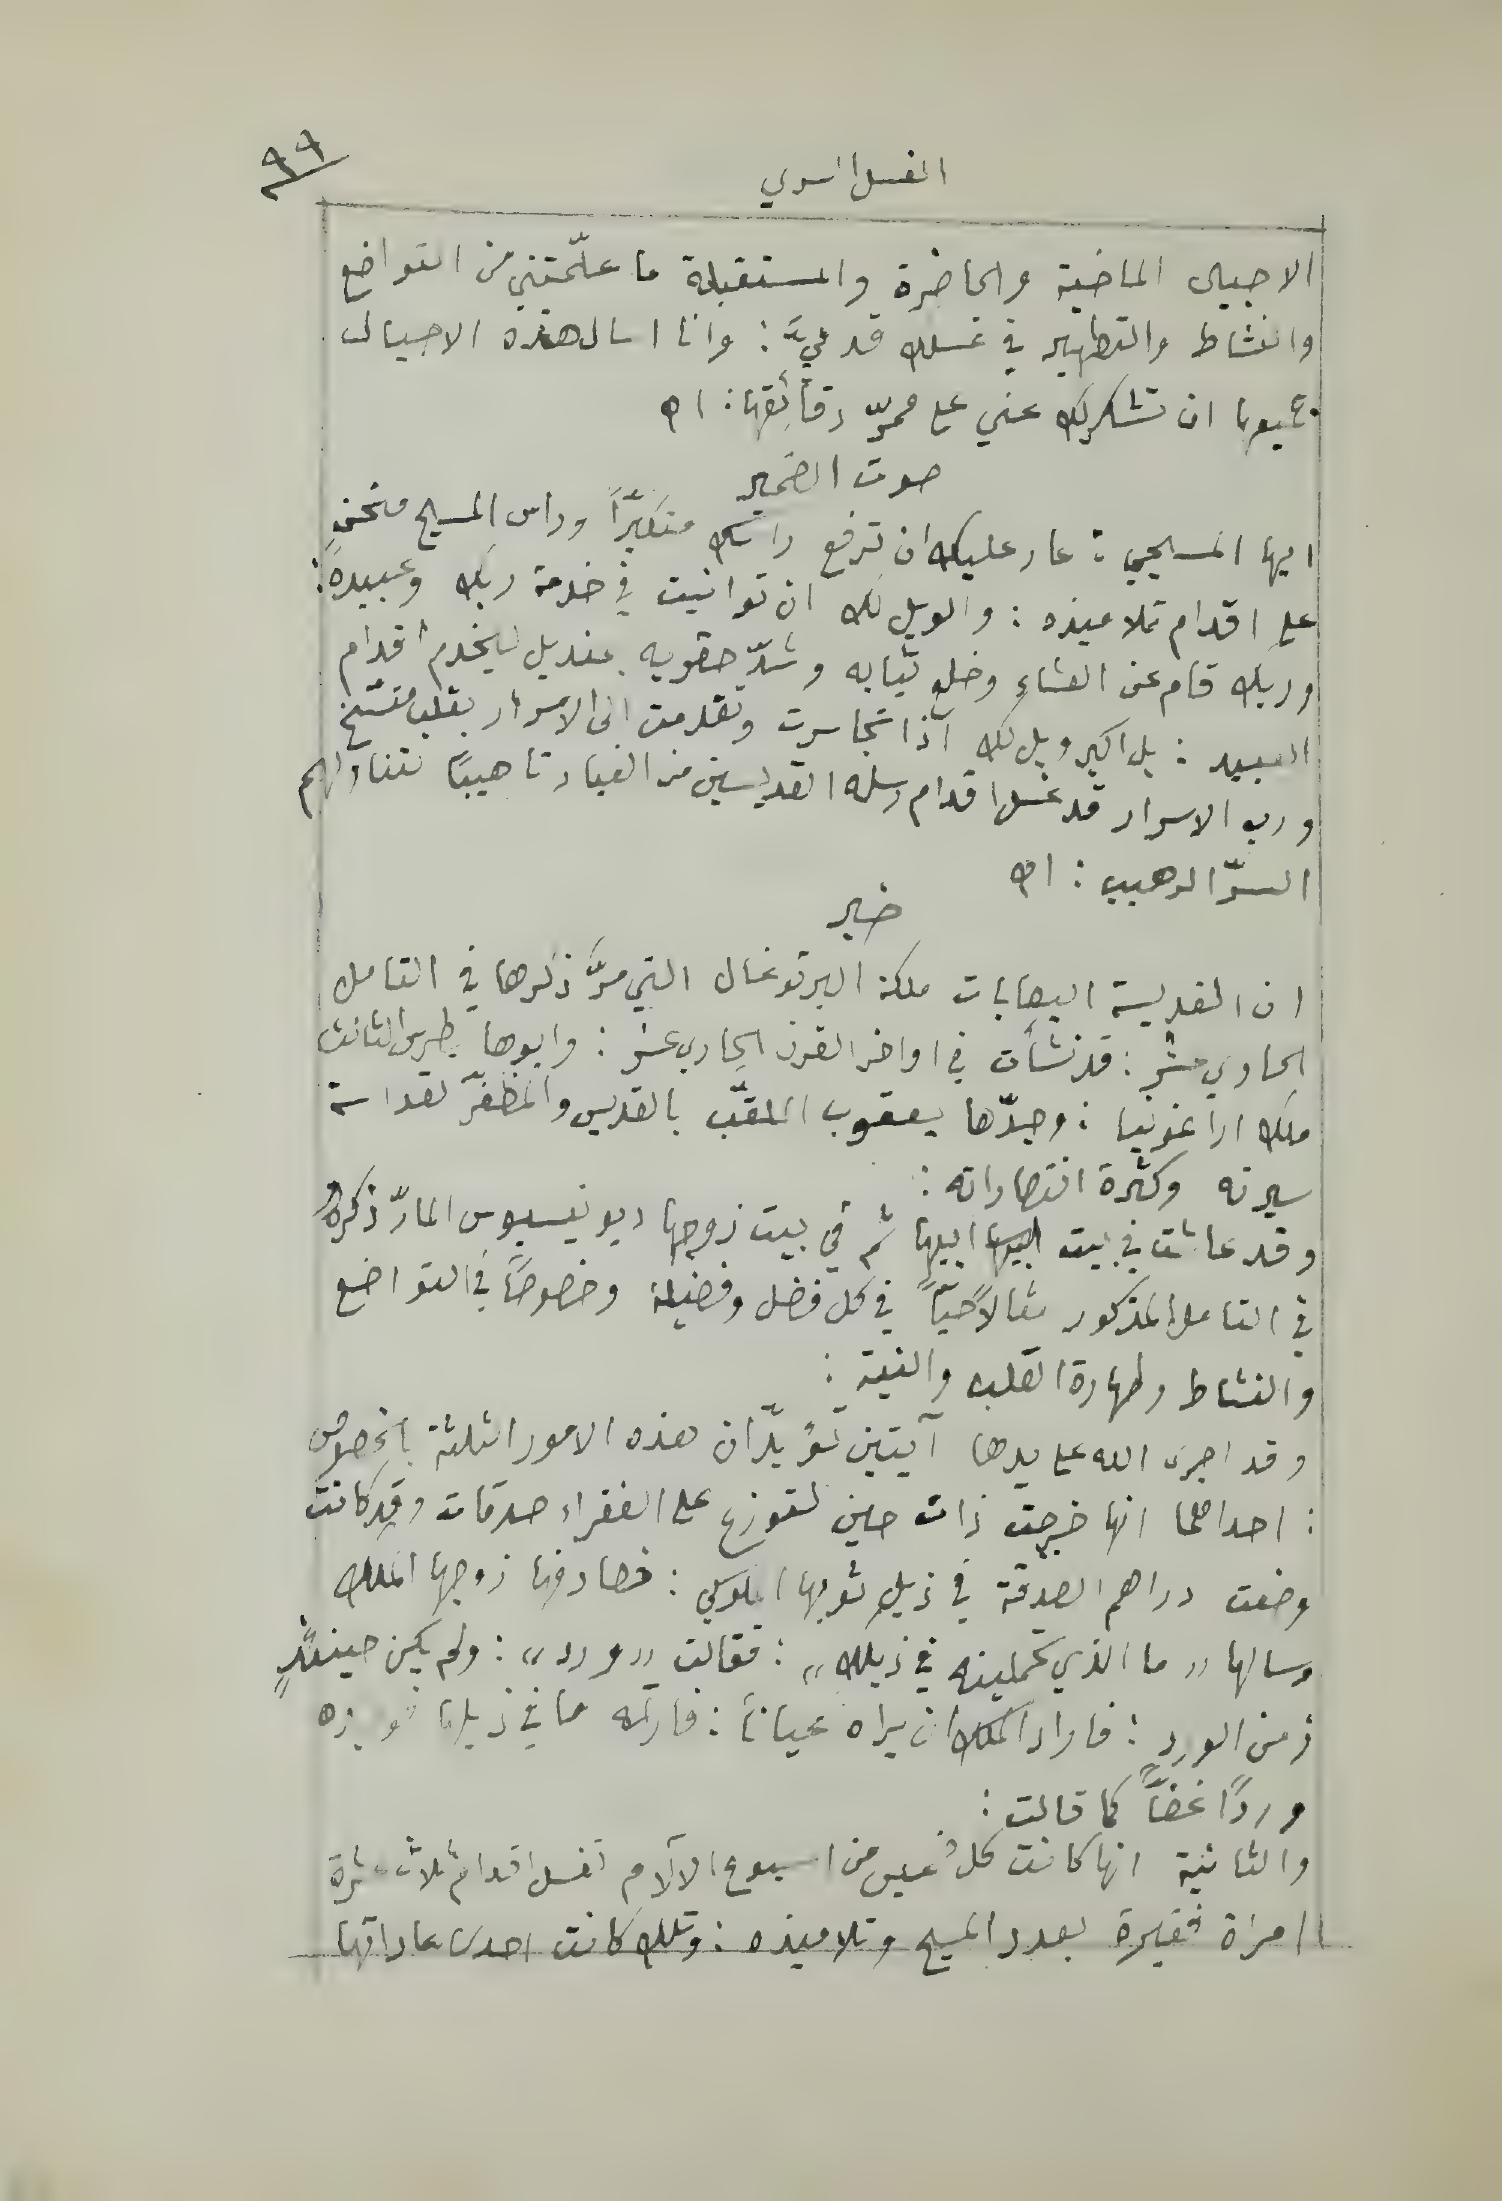 ٩٩
الغسل السري
الاجيال الماضية والحاضرة والمستقبلة ما علّمتني من التواضع
والنشاط والتطهير في غسلك قدميَّ : وانا اسال هذه الاجيال
جميعها ان تشكرك عني على ممرّ دقائقها : اه
صوت الضمير
ايها المسيحي : عار عليك ان ترفع راسك متكبّراً وراس المسيح منحنٍ
على اقدام تلاميذه : والويل لك ان توانيت في خدمة ربك وعبيده :
وربك قام عن العشاء وخلع ثيابه وشدّ حقويه بمنديل ليخدم اقدام
العبيد : بل اكبر ويل لك اذا تجاسرت وتقدمت الى الاسرار بقلب متسّخ
ورب الاسرار قد غسل اقدام رسله القديسين من الغبار تاهيباً لتناولهم
السرّ الرهيب : اه
خبر
ان القديسة اليصابات ملكة البرتوغال التي مرَّ ذكرها في التامل
الحادي عشر : قد نشأت في اواخر القرن الحادي عشر : وابوها بطرس الثالث
ملك اراغونيا : وجدّها يعقوب الملقّب بالقديس والمظفّر لقداسة
سيرته وكثرة انتصاراته :
وقد عاشت في بيت ابيها ثم في بيت زوجها ديونيسيوس المارّ ذكره
في التامل المذكور مثالاً حيّاً في كل فضل وفضيلة وخصوصاً في التواضع
والنشاط وطهارة القلب والنية :
وقد اجرى الله على يدها آيتين تؤيدّان هذه الامور الثلثة بالخصوص
: احداهما انها خرجت ذات حين لتوزع على الفقراء صدقات وقد كانت
وضعت دراهم الصدقة في ذيل ثوبها الملوكي : فصادفها زوجها الملك
وسالها « ما الذي تحملينه في ذيلك » : فقالت « ورد » : ولم يكن حينئذٍ
زمن الورد : فاراد الملك ان يراه عياناً : فارته ما في ذيلها فوجده
ورداً غضّاً كما قالت :
والثانية انها كانت كل خميس من اسبوع الآلام تغسل اقدام ثلاث عشرة
امراة فقيرة بعدد المسيح وتلاميذه : وتلك كانت احدى عاداتها